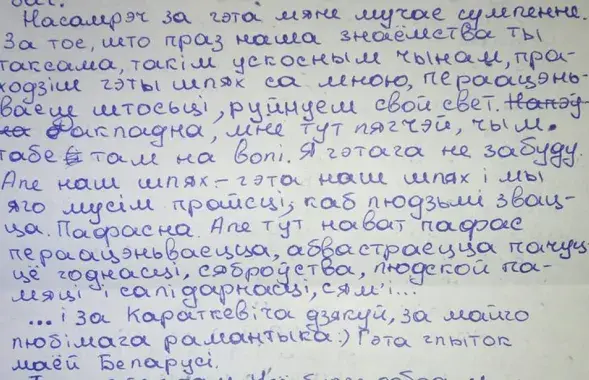 Насамрэч за гэта мяне мучае сумленне.
За тое, што праз наша знаёмства ты
таксама, такім ускосным чынам, пра-
ходзіш гэты шлях са мною, пераацэнь-
ваеш штосьці, руйнуеш свой свет.
Дакладна, мне тут лягчэй, чым
табе там на волі. Я гэтага не забуду.
Але наш шлях – гэта наш шлях і мы
яго мусім прайсці, каб людзьмі звац-
ца. Пафасна. Але тут нават пафас
пераацэньваецца, абвастраецца пачуц-
цё годнасці, сяброўства, людской па-
мяці і салідарнасці, сям'і...
... і за Караткевіча дзякуй, за майго
любімага рамантыка:) Гэта глыток
маёй Беларусі.